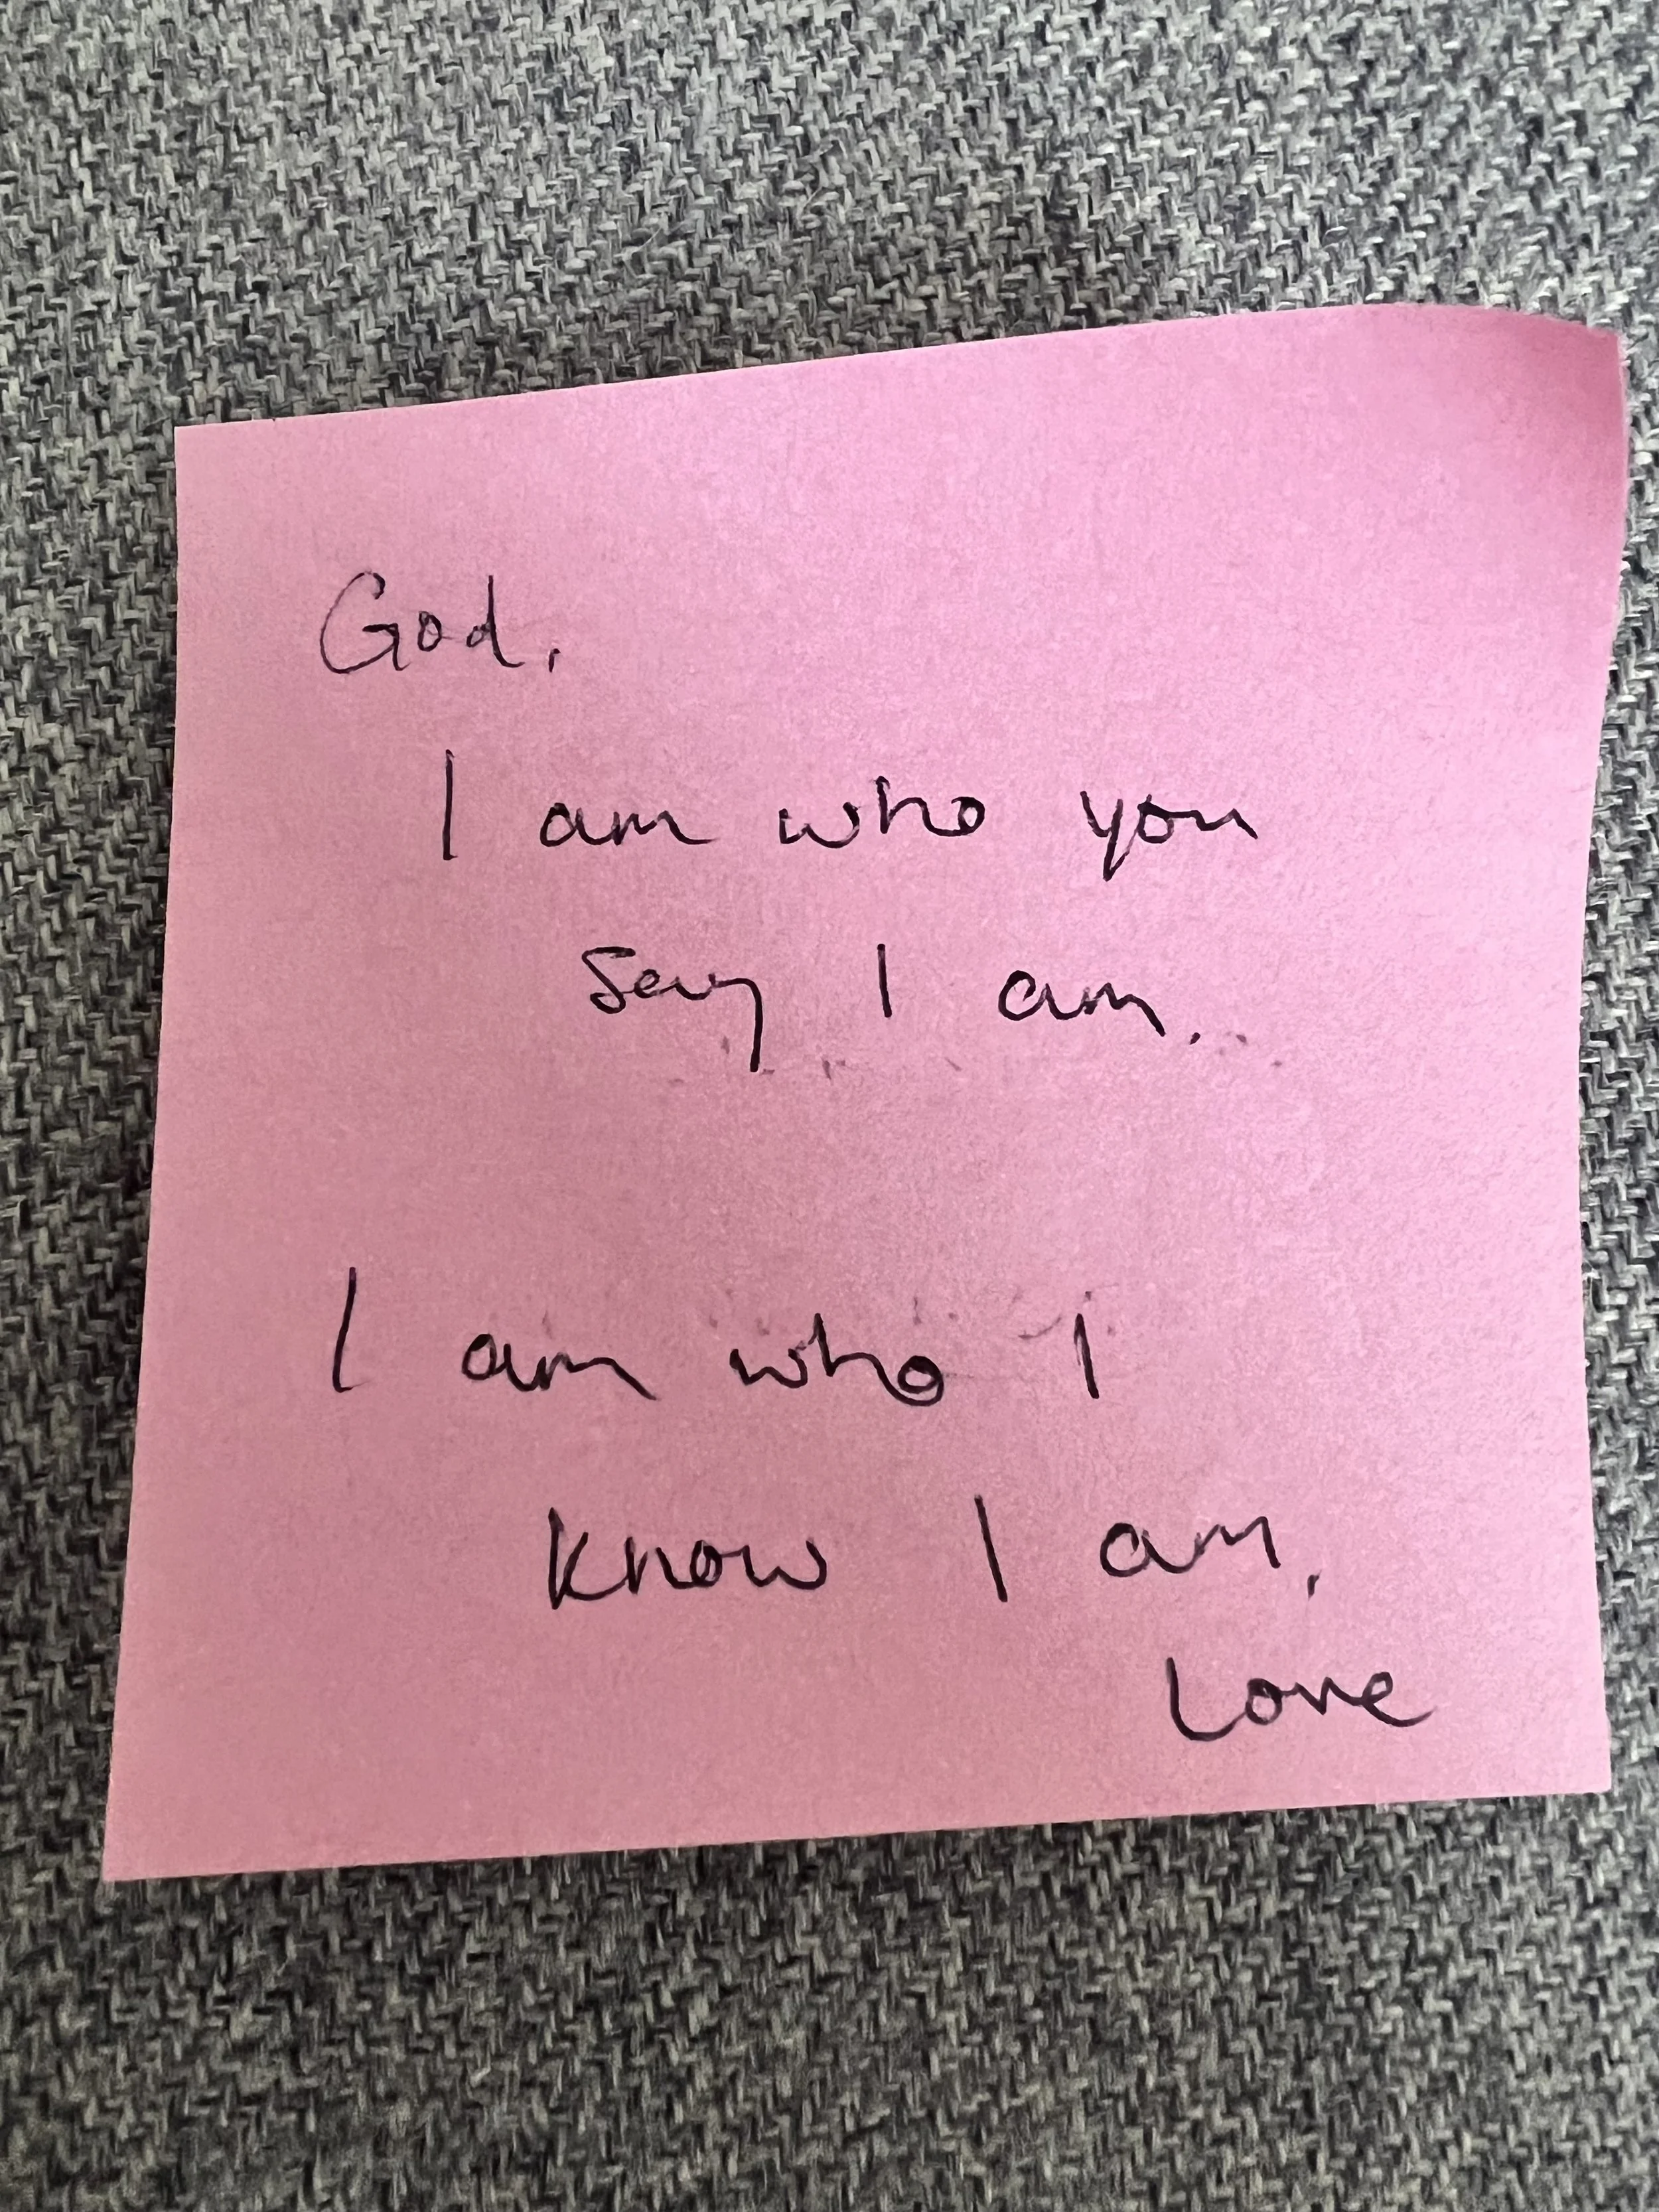 God,
I am who you
say I am.
I am who I
know I am.
Love